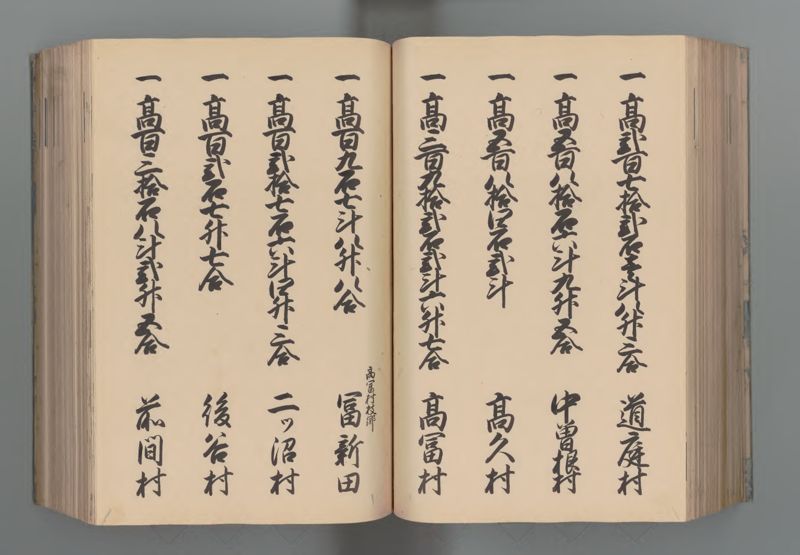 一 高貳百七拾貳石壱斗八升三合 道庭村
一 高五百八拾石六斗九升五合 中曽根村
一 高五百八拾四石貳斗 高久村
一 高三百九拾貳石貳斗六升七合 高冨村
一 高百九石七斗八升八合 高冨村枝郷 冨新田
一 高百貳拾七石六斗四升三合 二ッ沼村
一 高百貳石七升七合 後谷村
一 高百三拾石八斗貳升五合 前間村